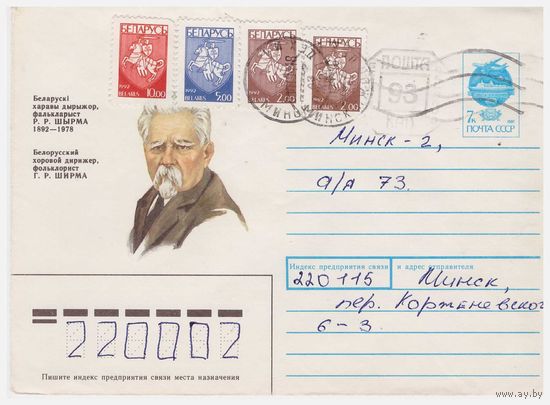 БЕЛАРУСЬ
1992
BELARUS
10.00
БЕЛАРУСЬ
1992
BELARUS
5.00
БЕЛАРУСЬ
1992
BELARUS
2.00
БЕЛАРУСЬ
1992
BELARUS
2.00
МИНСК
ПОШТА
93
7к
ПОЧТА СССР
Беларускі
харавы дырыжор,
фалькларыст
Р. Р. ШЫРМА
1892—1978
Белорусский
хоровой дирижер,
фольклорист
Г. Р. ШИРМА
Минск-2,
а/я 73.
Индекс предприятия связи и адрес отправителя
220115 Минск,
пер. Корженевского
6-3.
220002
Пишите индекс предприятия связи места назначения
www.ay.by